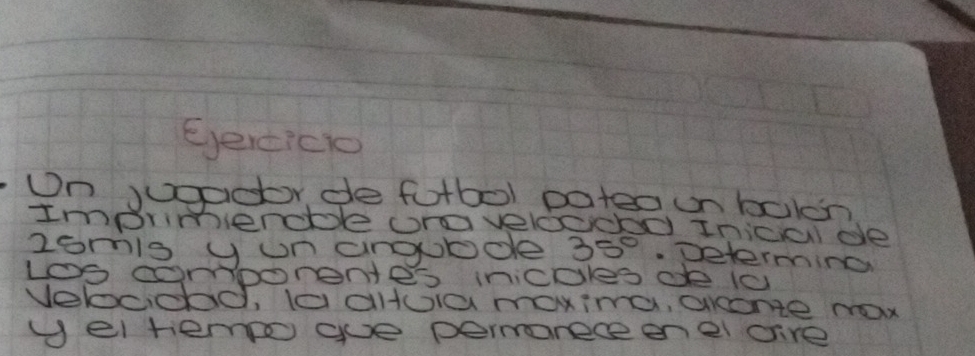 Ejercicio
Un jugador de futbol patea un balón
Imprimiendole una velocidad Inicial de
25m/s y un angulo de 35°. Determina
Los componentes iniciales de la
velocidad, la altura maxima, alcance max
y el tiempo que permanece en el aire